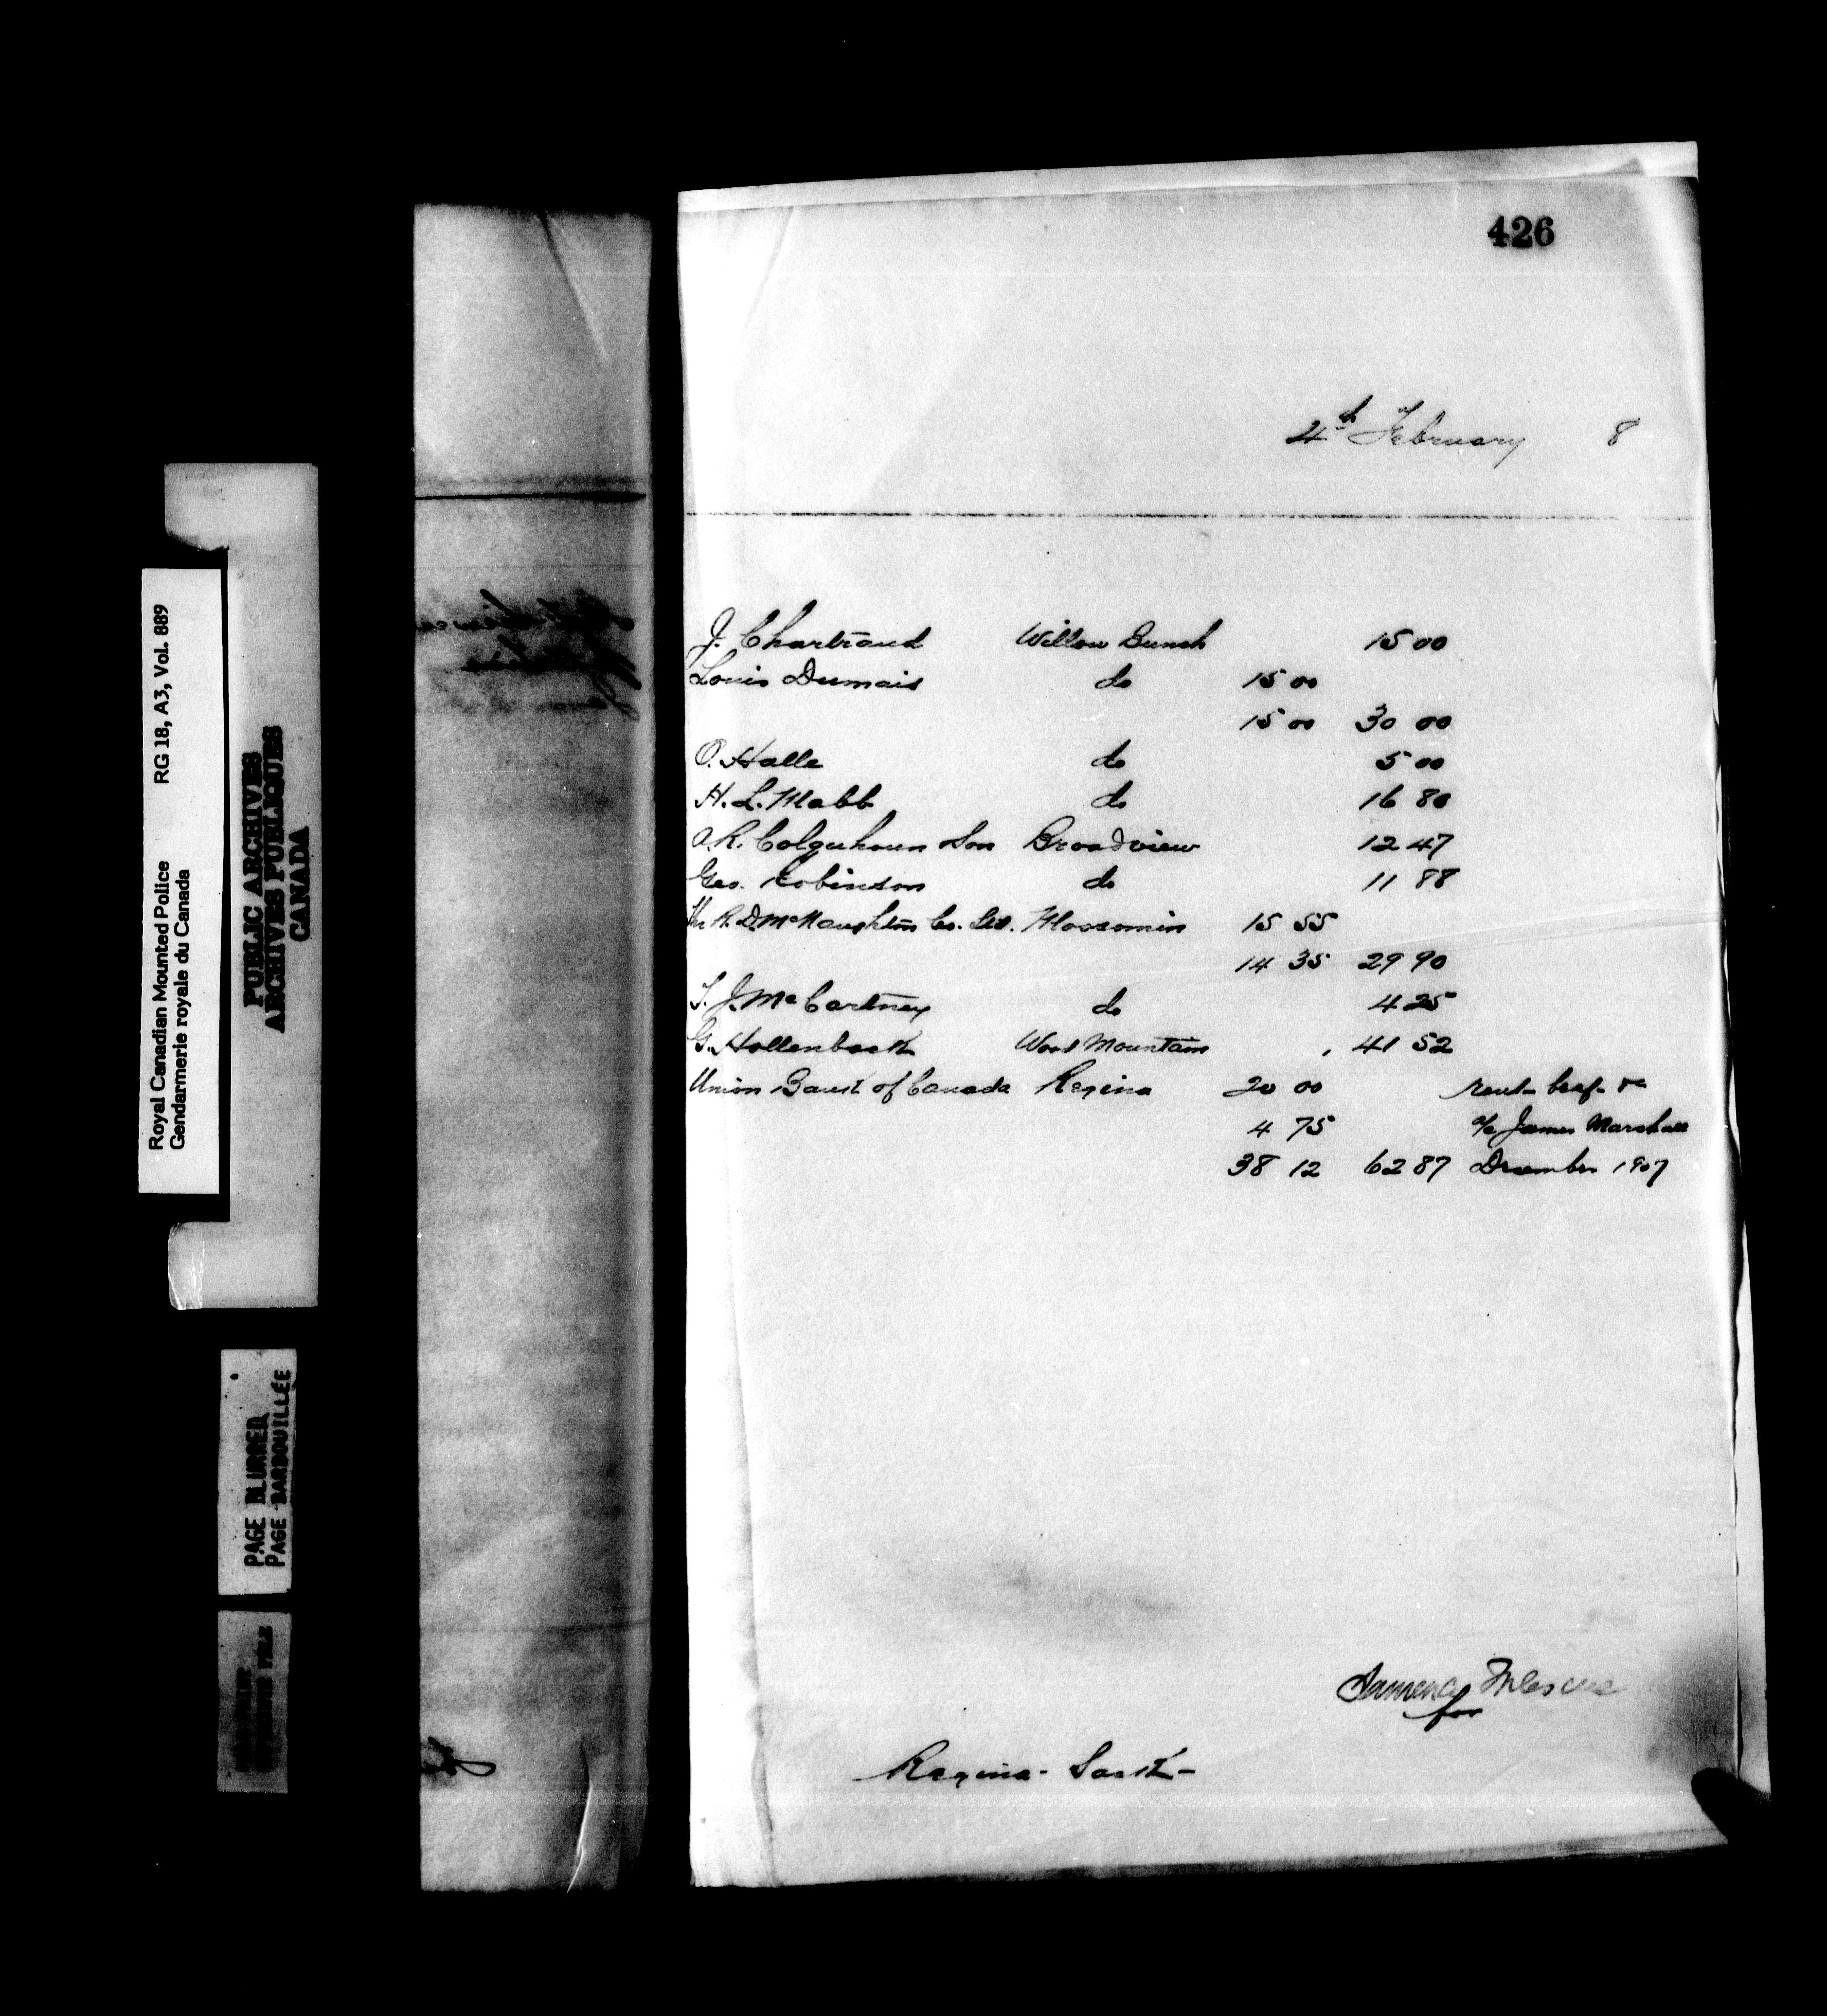 426
4th February 8
J. Chartrand Willow Bunch 15 00
Louis Dumais do 15 00
15 00 30 00
O. Halle do 5 00
H. L. Mabb do 16 80
A. R. Colquhoun Son Broadview 12 47
Geo. Robinson do 11 88
The R. D. McNaughton Co. Ltd. Moosomin 15 55
14 35 29 90
T. J. McCartney do 4 25
G. Hollenbeck Wood Mountain 41 52
Union Bank of Canada Regina 20 00 rent- beef- &c
4 75 a/c James Marshall
38 12 62 87 December 1907
for
Regina- Sask-
Royal Canadian Mounted Police RG 18, A3, Vol. 889
Gendarmerie royale du Canada
PUBLIC ARCHIVES
ARCHIVES PUBLIQUES
CANADA
PAGE BLURRED
PAGE BARBOUILLÉE